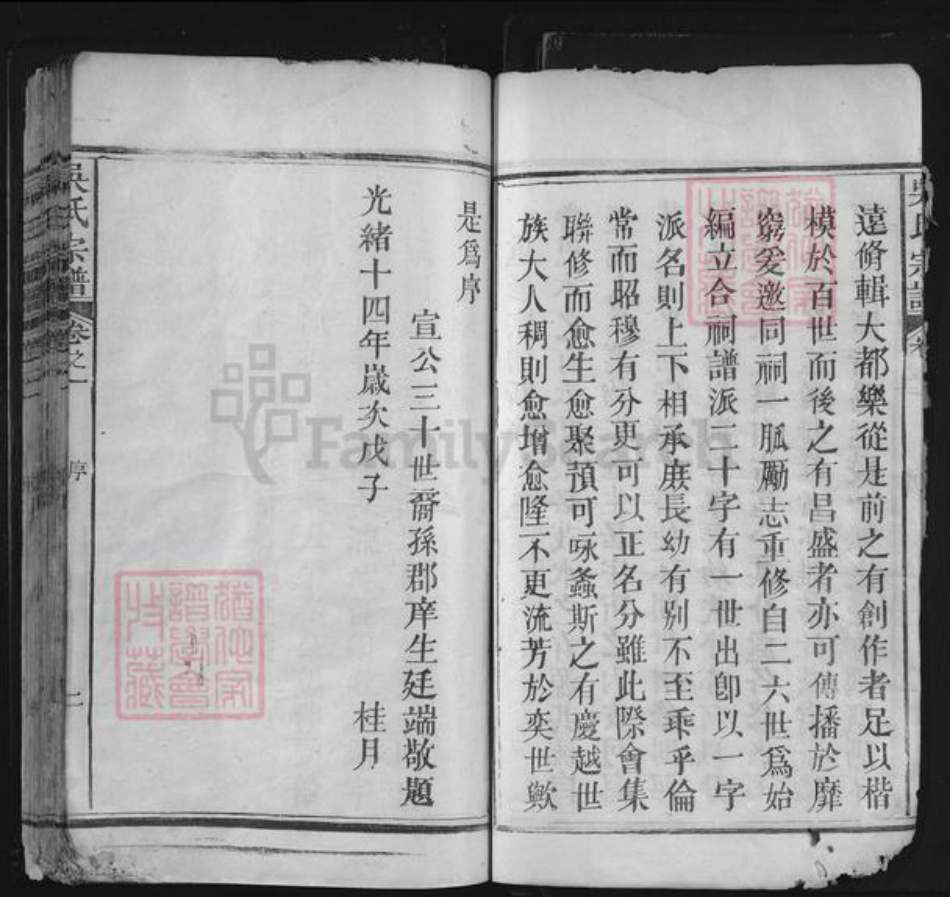 吳氏宗譜
遠脩輯大都樂從是前之有創作者足以楷
模於百世而後之有昌盛者亦可傳播於靡
窮爰邀同祠一脈勵志重修自二六世爲始
編立合祠譜派二十字有一世出卽以一字
派名則上下相承庶長幼有别不至乖乎倫
常而昭穆有分更可以正名分雖此際會集
聯修而愈生愈聚預可咏螽斯之有慶越世
族大人稠則愈增愈隆不更流芳於奕世歟
是爲序
宣公三十世裔孫郡庠生廷端敬題
光緒十四年嵗次戊子
桂月
吳氏宗譜 卷之一 序 二
FamilySearch